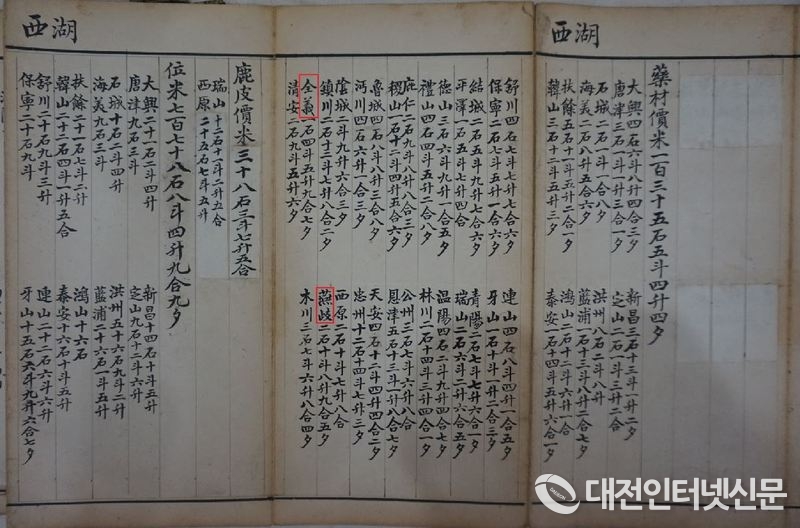 湖西
藥材價米一百三十五石五斗四升四夕
大興四石六斗八升四合三夕 新昌三石十三斗一升二夕
唐津三石一斗一升三合一夕 定山二石一斗三升二合
石城二石二斗一合八夕 洪州八石二斗二夕
海美二石五斗一升八夕 藍浦二石十三斗二升二合七夕
扶餘五石十一斗五升二合一夕 鴻山二石二斗六升一合
韓山三石十一斗五升三夕 泰安一石十四斗五升六合一夕
舒川四石七斗七升七合六夕 連山四石八斗四升一合五夕
保寧二石七斗一升六合一夕 牙山一石十斗一升二合三夕
結城二石五斗九升七合六夕 青陽二石七斗七升六合一夕
平澤一石五斗七升四合 瑞山二石十四斗六升五夕
德山三石十斗四升一合五夕 温陽四石二斗九升四合七夕
禮山四石四斗五升二合八夕 林川二石十四斗三升四合一夕
庇仁二石九斗八升八合三夕 公州三石七斗六升八合
稷山一石十二斗四升五合六夕 恩津五石十三斗一升八合七夕
魯城四石六斗八升三合八夕 天安四石十二斗四升四合二夕
河川四石六斗六升一合三夕 忠州十二石十四斗八升三夕
陰城二斗九升六合三夕 西原二石十斗七升八合
鎮川二石十三斗七升八合二夕 燕岐一石十斗八升九合五夕
全義一石四斗五升九合七夕 木川三石七斗六升八合四夕
清安二石九斗五升六夕
鹿皮價米三十八石三斗七升五合
瑞山十二石十一斗二升五合
西原二十五石七斗五升
湖西
位米七百七十八石八斗四升九合九夕
大興二十一石二斗四升 新昌十四石十斗五升
唐津九石三斗 定山九石十斗二升
石城十石二斗四升 洪州五十六石九斗二升
海美九石三斗 藍浦二十六石一斗五升
扶餘二十一石七斗二升 鴻山十六石
韓山二十二石四斗一升五合 泰安十六石十斗五升
舒川二十九石九斗三升 連山二十二石六斗六升
保寧二十石九斗 牙山十五石六斗九升六合七夕
대전인터넷신문